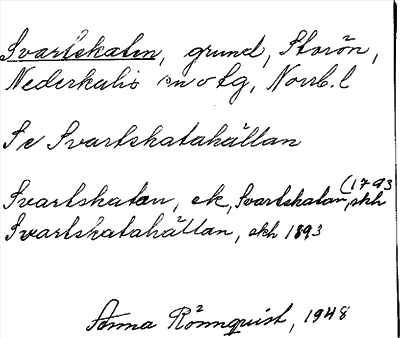 Svartskaten, grund, Storön,
Nederkalix sn o tg, Norrb. l
Se Svartskatahällan
Svartskatan, ek, Svartskatan, skh (1793
Svartskatahällan, skh 1893
Anna Rönnquist, 1948